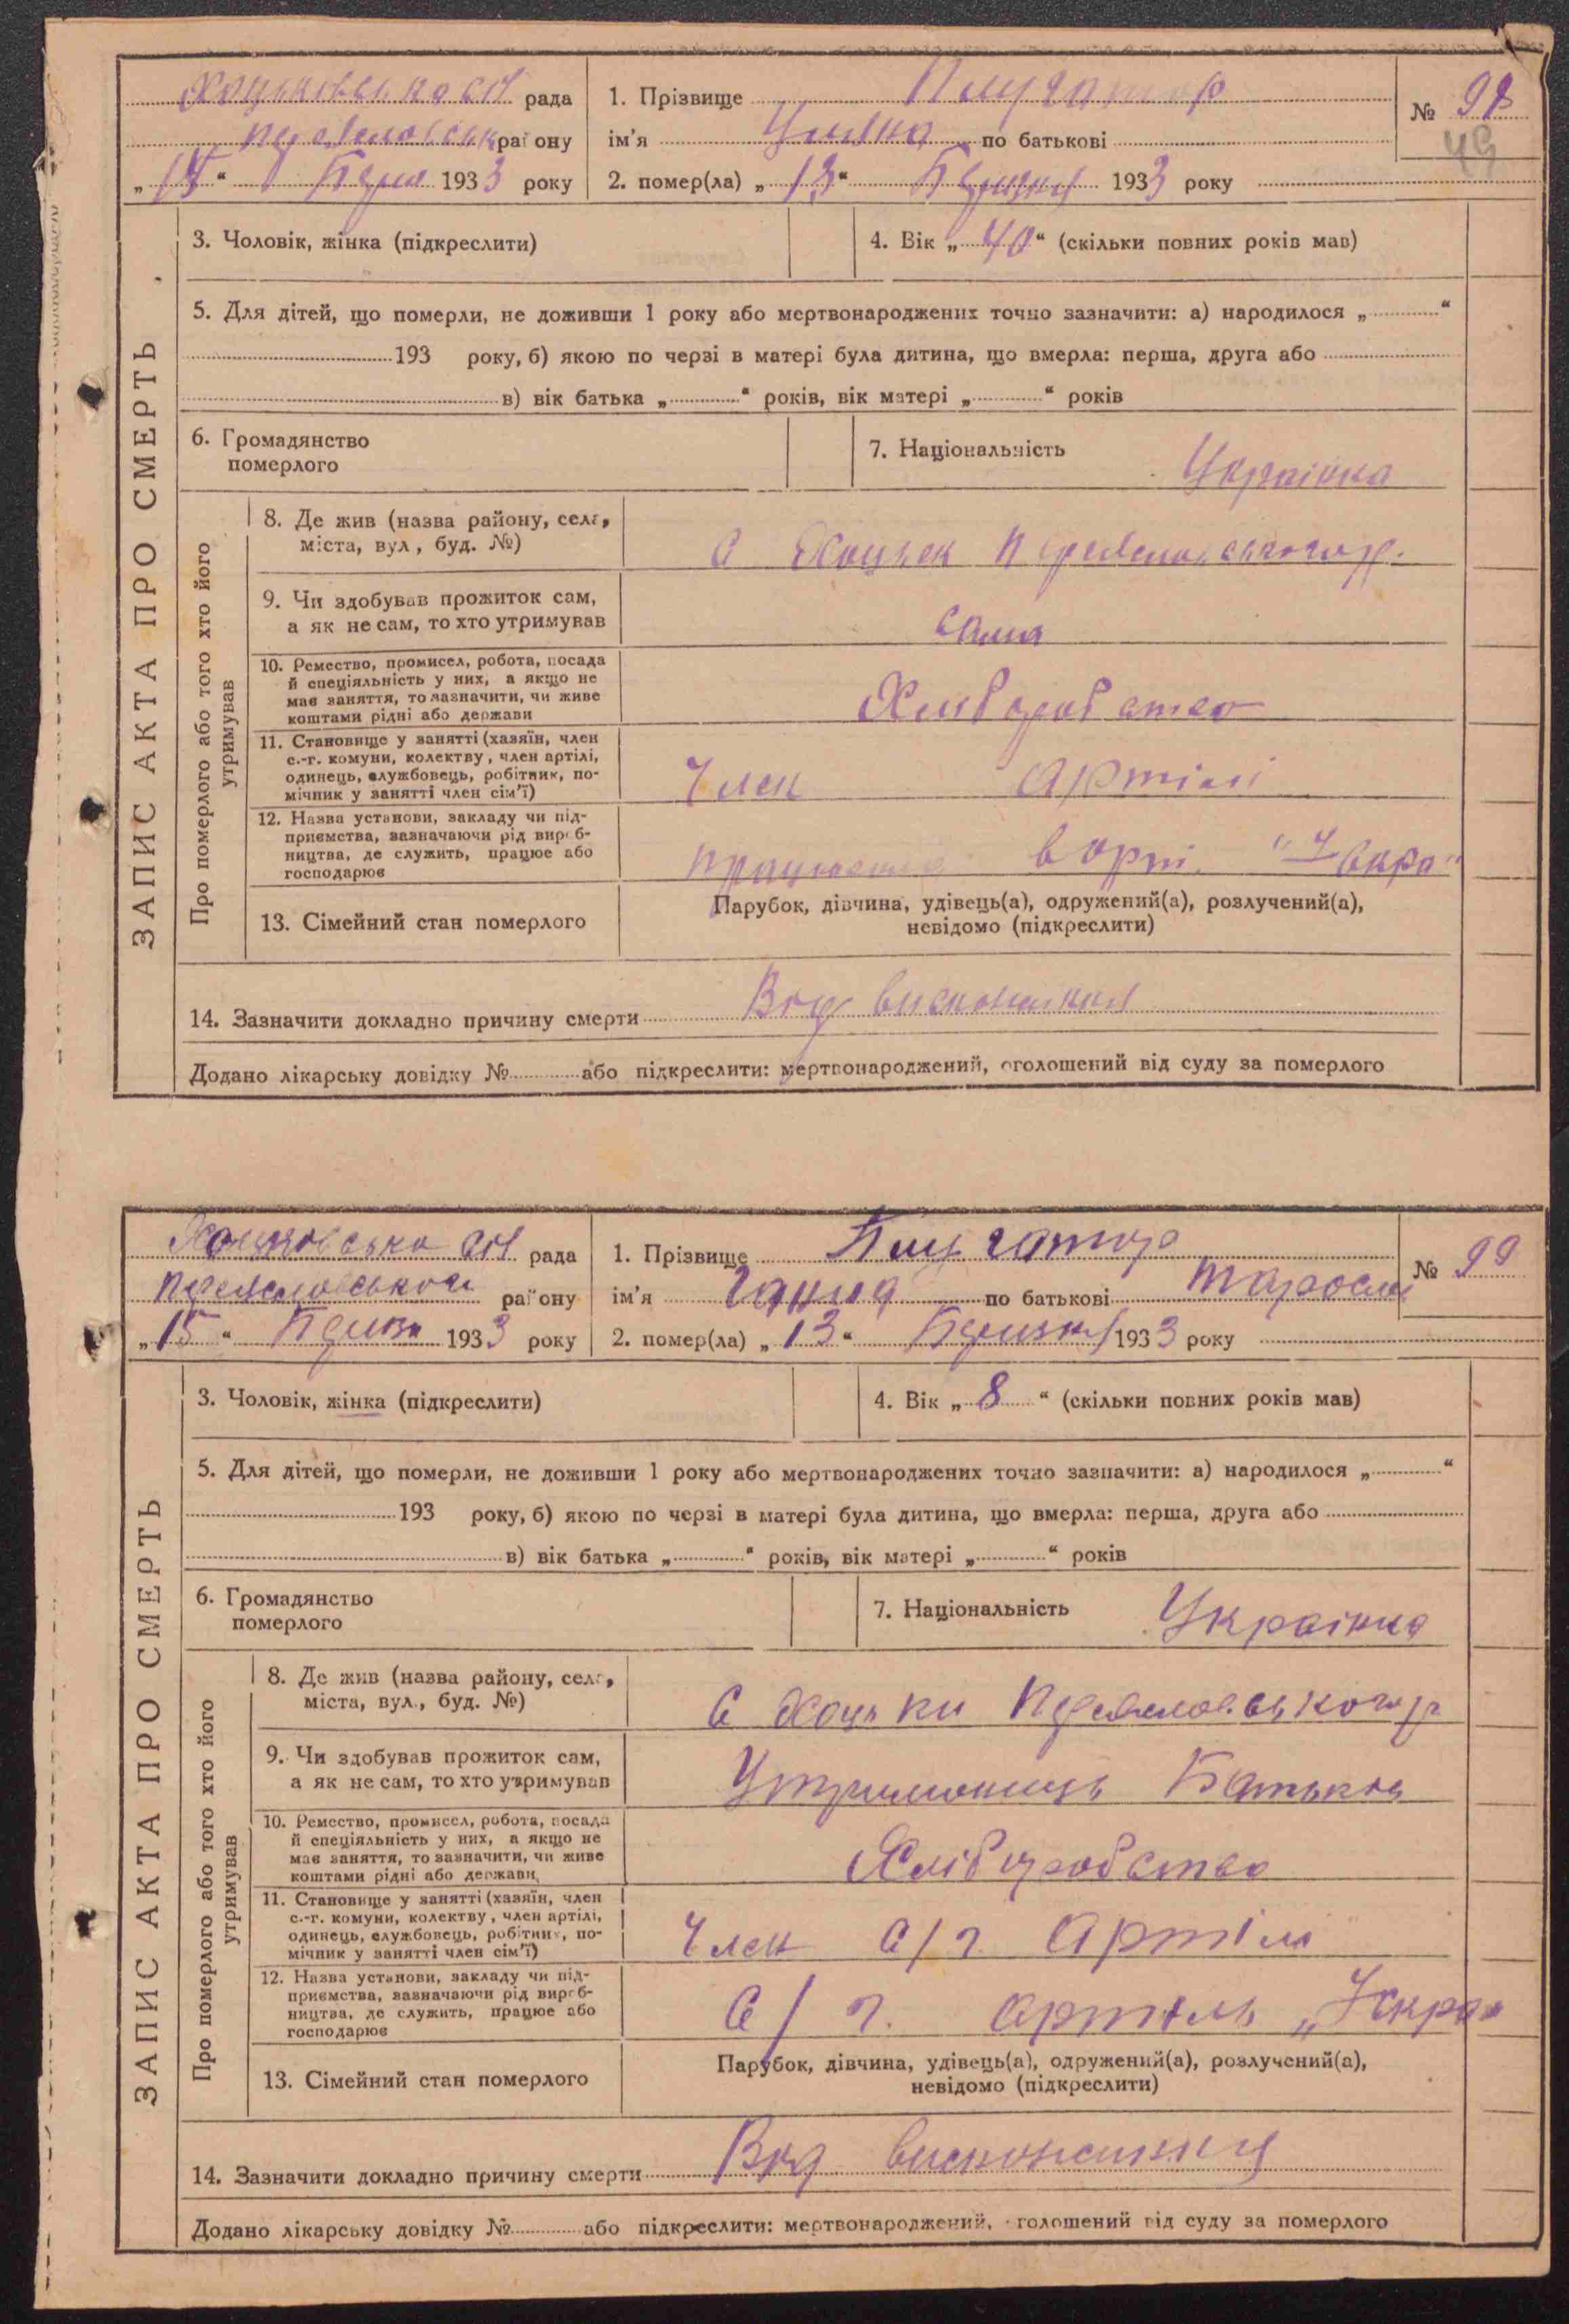 ЗАПИС АКТА ПРО СМЕРТЬ
Хоцьківська с/г рада
району
„15“ 1933 року
1. Прізвище Плугатор
ім’я по батькові
2. помер(ла) „13“ 1933 року
№ 98
49
3. Чоловік, жінка (підкреслити)
4. Вік „40“ (скільки повних років мав)
5. Для дітей, що померли, не доживши 1 року або мертвонароджених точно зазначити: а) народилося „ “
193 року, б) якою по черзі в матері була дитина, що вмерла: перша, друга або
в) вік батька „ “ років, вік матері „ “ років
6. Громадянство
померлого
7. Національність Українка
Про померлого або того хто його
утримував
8. Де жив (назва району, села,
міста, вул., буд. №)
с Хоцьк
9. Чи здобував прожиток сам,
а як не сам, то хто утримував
Сама
10. Ремество, промисел, робота, посада
й спеціяльність у них, а якщо не
має заняття, то зазначити, чи живе
коштами рідні або держави
11. Становище у занятті (хазяїн, член
с.-г. комуни, колектву, член артілі,
одинець, службовець, робітник, по-
мічник у занятті член сім’ї)
Член артілі
12. Назва установи, закладу чи під-
приємства, зазначаючи рід вироб-
ництва, де служить, працює або
господарює
13. Сімейний стан померлого
Парубок, дівчина, удівець(а), одружений(а), розлучений(а),
невідомо (підкреслити)
14. Зазначити докладно причину смерти Від
Додано лікарську довідку № або підкреслити: мертвонароджений, оголошений від суду за померлого
ЗАПИС АКТА ПРО СМЕРТЬ
Хоцьківська с/г рада
району
„15“ 1933 року
1. Прізвище Плугатор
ім’я Ганна по батькові
2. помер(ла) „13“ 1933 року
№ 99
3. Чоловік, жінка (підкреслити)
4. Вік „8“ (скільки повних років мав)
5. Для дітей, що померли, не доживши 1 року або мертвонароджених точно зазначити: а) народилося „ “
193 року, б) якою по черзі в матері була дитина, що вмерла: перша, друга або
в) вік батька „ “ років, вік матері „ “ років
6. Громадянство
померлого
7. Національність Українка
Про померлого або того хто його
утримував
8. Де жив (назва району, села,
міста, вул., буд. №)
с Хоцьки
9. Чи здобував прожиток сам,
а як не сам, то хто утримував
Батька
10. Ремество, промисел, робота, посада
й спеціяльність у них, а якщо не
має заняття, то зазначити, чи живе
коштами рідні або держави
Хліборобство
11. Становище у занятті (хазяїн, член
с.-г. комуни, колектву, член артілі,
одинець, службовець, робітник, по-
мічник у занятті член сім’ї)
Член с/г артіли
12. Назва установи, закладу чи під-
приємства, зазначаючи рід вироб-
ництва, де служить, працює або
господарює
с/г. артіль „Іскра“
13. Сімейний стан померлого
Парубок, дівчина, удівець(а), одружений(а), розлучений(а),
невідомо (підкреслити)
14. Зазначити докладно причину смерти Від
Додано лікарську довідку № або підкреслити: мертвонароджений, оголошений від суду за померлого